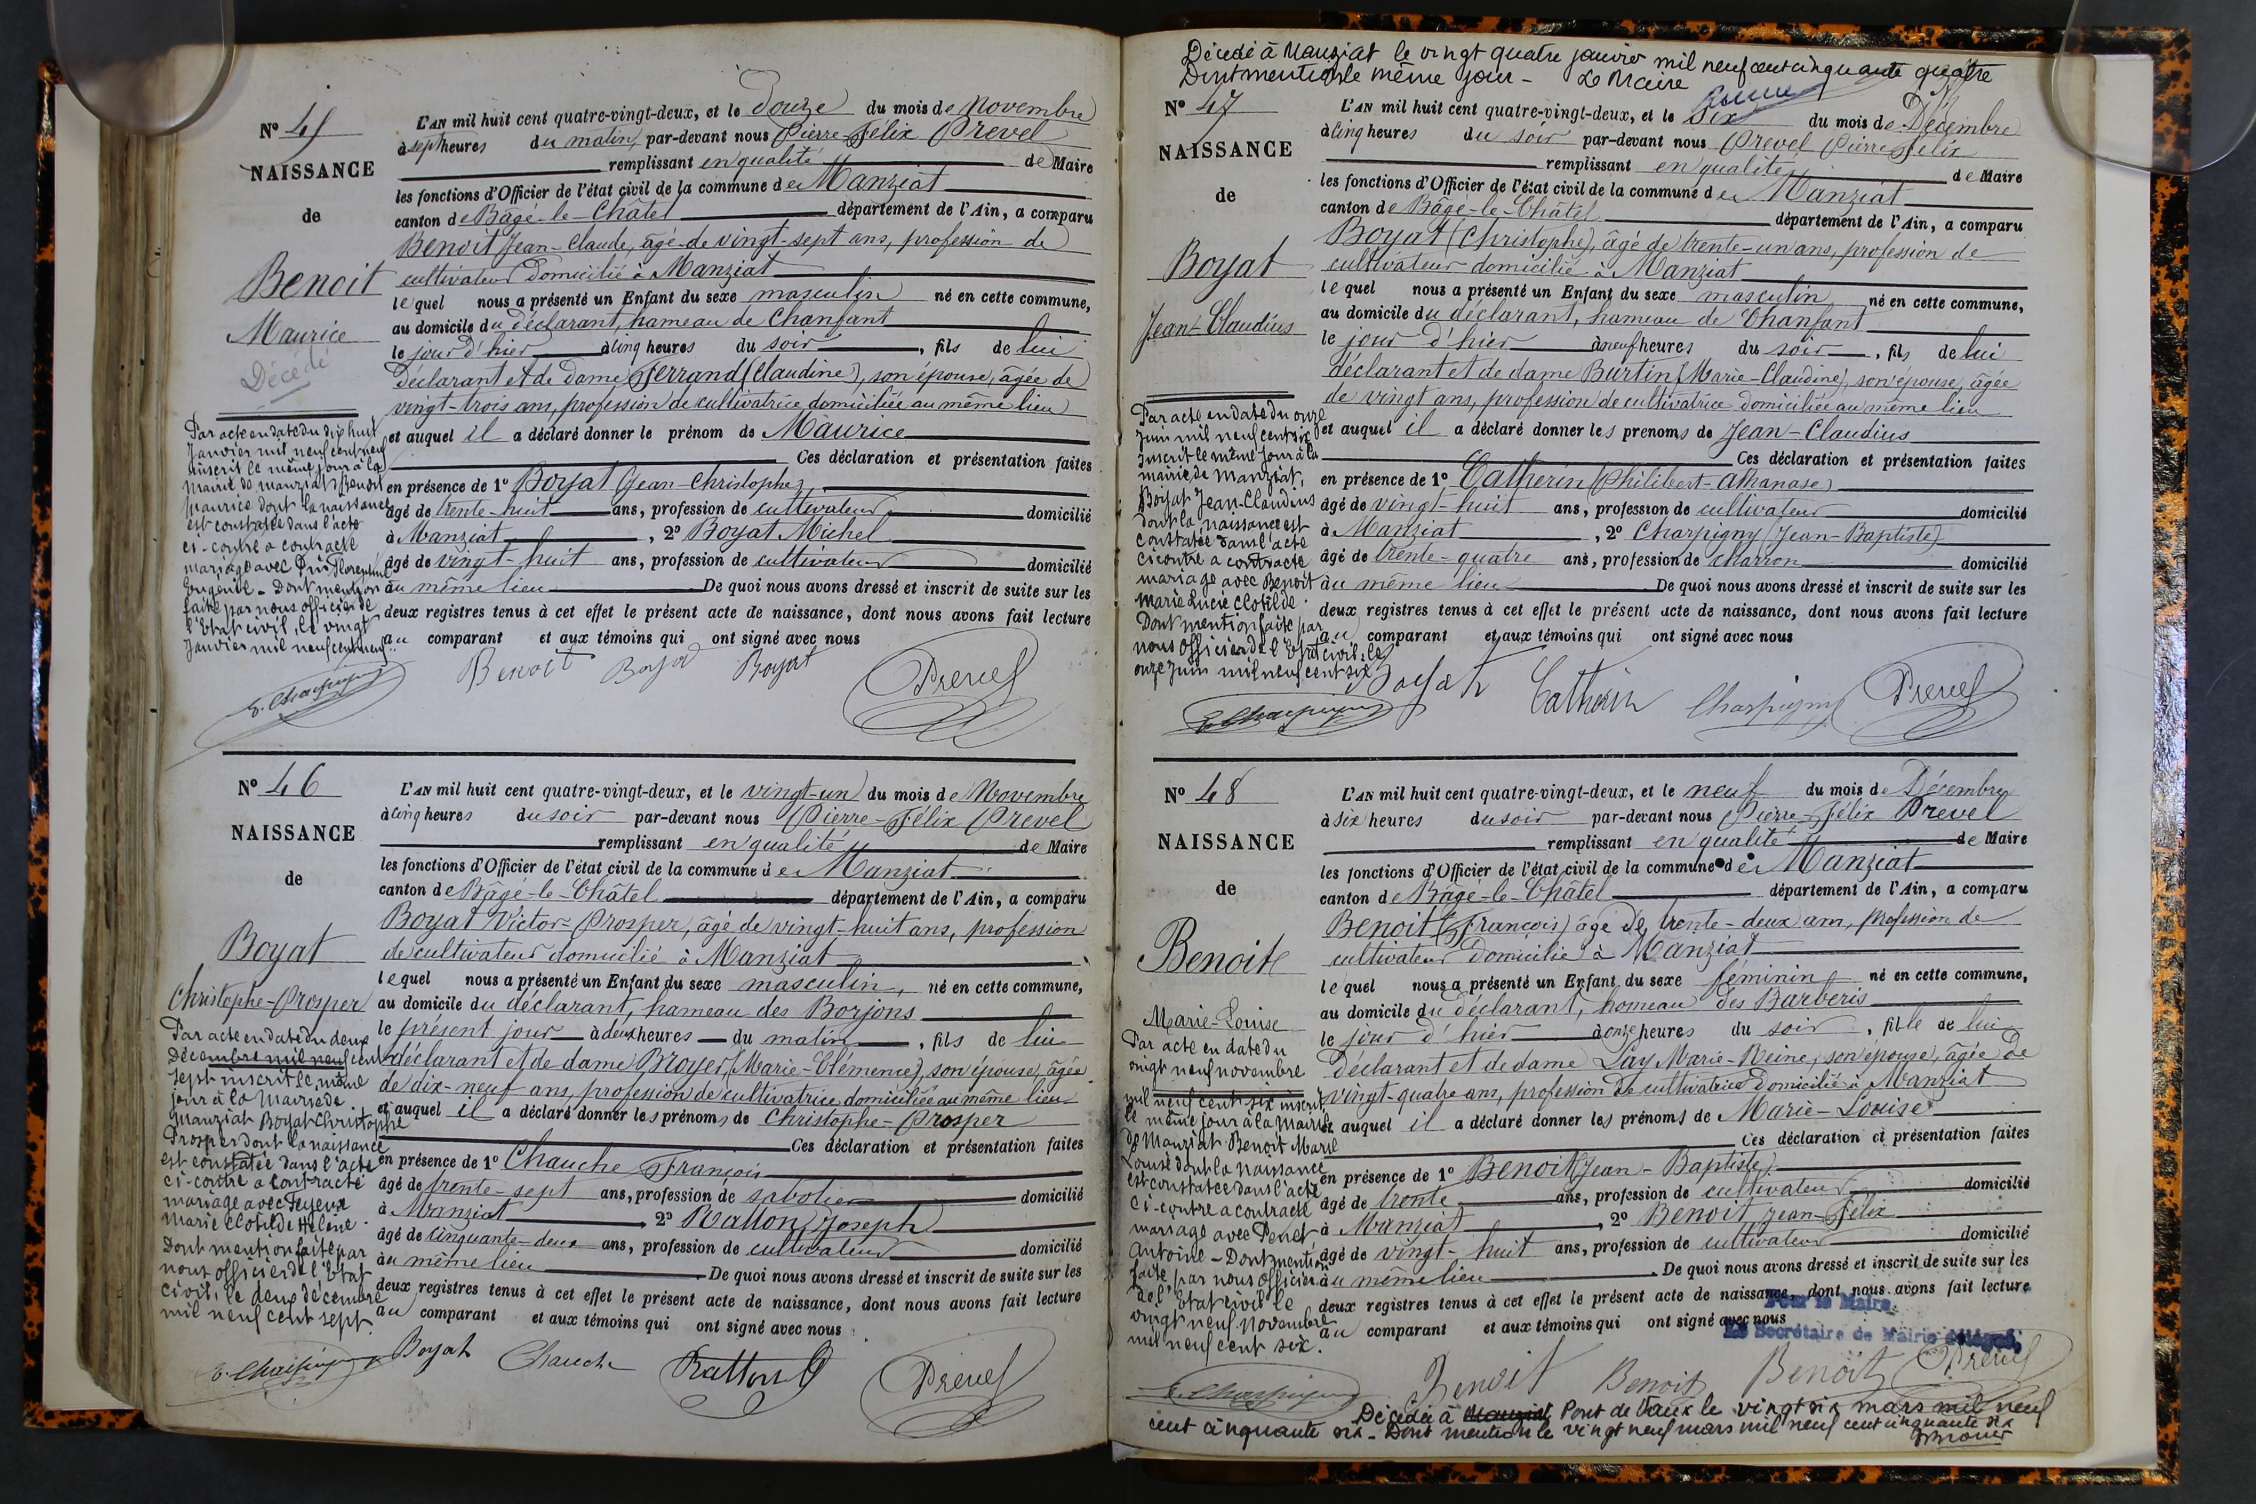 Nº 45
NAISSANCE
de
Benoit
Maurice
Décédé
Par acte en date du dix huit
Janvier mil neuf cent neuf
inscrit le même jour à la
mairie de Manziat Benoit
Maurice dont la naissance
est constatée dans l'acte
ci-contre a contracté
mariage avec
Eugénie - Dont mention
faite par nous officier de
l'Etat civil, le vingt
Janvier mil neuf cent neuf
L'AN mil huit cent quatre-vingt-deux, et le douze du mois de Novembre
à sept heures du matin, par-devant nous Pierre-Félix Prevel
remplissant en qualité de Maire
les fonctions d'Officier de l'état civil de la commune de Manziat
canton de Bâgé-le-Châtel département de l'Ain, a comparu
Benoit Jean-Claude, âgé de vingt-sept ans, profession de
cultivateur domicilié à Manziat
lequel nous a présenté un Enfant du sexe masculin né en cette commune,
au domicile du déclarant, hameau de Chanfant
le jour d'hier à cinq heures du soir, fils de lui
déclarant et de dame Ferrand (Claudine), son épouse, âgée de
vingt-trois ans, profession de cultivatrice domiciliée au même lieu
et auquel il a déclaré donner le prénom de Maurice
Ces déclaration et présentation faites
en présence de 1º Boyat (Jean-Christophe)
âgé de trente-huit ans, profession de cultivateur domicilié
à Manziat, 2º Boyat Michel
âgé de vingt-huit ans, profession de cultivateur domicilié
au même lieu De quoi nous avons dressé et inscrit de suite sur les
deux registres tenus à cet effet le présent acte de naissance, dont nous avons fait lecture
au comparant et aux témoins qui ont signé avec nous
E. Charpigny Benoit Boyat Boyat Prevel
Nº 46
NAISSANCE
de
Boyat
Christophe-Prosper
Par acte en date du deux
Décembre mil neuf cent
sept inscrit le même
jour à la Mairie de
Manziat Boyat Christophe
Prosper dont la naissance
est constatée dans l'acte
ci-contre a contracté
mariage avec Feyeux
Marie Clotilde Hélène.
Dont mention faite par
nous officier de l'Etat
civil, le deux décembre
mil neuf cent sept.
L'AN mil huit cent quatre-vingt-deux, et le vingt-un du mois de Novembre
à cinq heures du soir par-devant nous Pierre-Félix Prevel
remplissant en qualité de Maire
les fonctions d'Officier de l'état civil de la commune de Manziat
canton de Bâgé-le-Châtel département de l'Ain, a comparu
Boyat Victor-Prosper, âgé de vingt-huit ans, profession
de cultivateur domicilié à Manziat
lequel nous a présenté un Enfant du sexe masculin, né en cette commune,
au domicile du déclarant, hameau des Borjons
le présent jour à deux heures du matin, fils de lui
déclarant et de dame Broyer (Marie-Clémence), son épouse, âgée
de dix-neuf ans, profession de cultivatrice domiciliée au même lieu
et auquel il a déclaré donner les prénoms de Christophe-Prosper
Ces déclaration et présentation faites
en présence de 1º Chauche François
âgé de trente-sept ans, profession de sabotier domicilié
à Manziat, 2º Ratton (Joseph)
âgé de cinquante-deux ans, profession de cultivateur domicilié
au même lieu De quoi nous avons dressé et inscrit de suite sur les
deux registres tenus à cet effet le présent acte de naissance, dont nous avons fait lecture
au comparant et aux témoins qui ont signé avec nous
E. Charpigny Boyat Chauche Ratton Prevel
Décédé à Manziat le vingt quatre janvier mil neuf cent cinquante quatre
Dont mention le même jour - Le Maire
Nº 47
NAISSANCE
de
Boyat
Jean-Claudius
Par acte en date du onze
Juin mil neuf cent six
inscrit le même jour à la
mairie de Manziat,
Boyat Jean-Claudius
dont la naissance est
constatée dans l'acte
ci contre a contracté
mariage avec Benoit
Marie Lucie Clotilde.
Dont mention faite par
nous Officier de l'Etat civil, le
onze juin mil neuf cent six
L'AN mil huit cent quatre-vingt-deux, et le six du mois de Décembre
à cinq heures du soir par-devant nous Prevel Pierre Félix
remplissant en qualité de Maire
les fonctions d'Officier de l'état civil de la commune de Manziat
canton de Bâgé-le-Châtel département de l'Ain, a comparu
Boyat (Christophe), âgé de trente-un ans, profession de
cultivateur domicilié à Manziat
lequel nous a présenté un Enfant du sexe masculin né en cette commune,
au domicile du déclarant, hameau de Chanfant
le jour d'hier à neuf heures du soir, fils de lui
déclarant et de dame Burtin (Marie-Claudine), son épouse, âgée
de vingt ans, profession de cultivatrice domiciliée au même lieu
et auquel il a déclaré donner les prenoms de Jean-Claudius
Ces déclaration et présentation faites
en présence de 1º Catherin (Philibert-Athanase)
âgé de vingt-huit ans, profession de cultivateur domicilié
à Manziat, 2º Charpigny (Jean-Baptiste)
âgé de trente-quatre ans, profession de charron domicilié
au même lieu De quoi nous avons dressé et inscrit de suite sur les
deux registres tenus à cet effet le présent acte de naissance, dont nous avons fait lecture
au comparant et aux témoins qui ont signé avec nous
E. Charpigny Boyat Catherin Charpigny Prevel
Nº 48
NAISSANCE
de
Benoit
Marie-Louise
Par acte en date du
vingt neuf novembre
mil neuf cent six inscrit
le même jour à la Mairie
de Manziat Benoit Marie
Louise dont la naissance
est constatée dans l'acte
ci-contre a contracté
mariage avec Penet
Antoine - Dont mention
faite par nous Officier
de l'Etat civil le
vingt neuf Novembre
mil neuf cent six.
L'AN mil huit cent quatre-vingt-deux, et le neuf du mois de Décembre
à six heures du soir par-devant nous Pierre-Félix Prevel
remplissant en qualité de Maire
les fonctions d'Officier de l'état civil de la commune de Manziat
canton de Bâgé-le-Châtel département de l'Ain, a comparu
Benoit (François) âgé de trente-deux ans, profession de
cultivateur domicilié à Manziat
lequel nous a présenté un Enfant du sexe féminin né en cette commune,
au domicile du déclarant, hameau des Barberis
le jour d'hier à onze heures du soir, fille de lui
déclarant et de dame Lay Marie-Reine, son épouse, âgée de
vingt-quatre ans, profession de cultivatrice domiciliée à Manziat
et auquel il a déclaré donner les prénoms de Marie-Louise
Ces déclaration et présentation faites
en présence de 1º Benoit (Jean-Baptiste)
âgé de trente ans, profession de cultivateur domicilié
à Manziat, 2º Benoit Jean-Félix
âgé de vingt-huit ans, profession de cultivateur domicilié
au même lieu De quoi nous avons dressé et inscrit de suite sur les
deux registres tenus à cet effet le présent acte de naissance, dont nous avons fait lecture
au comparant et aux témoins qui ont signé avec nous
Pour le Maire,
Le Secrétaire de Mairie délégué,
E. Charpigny Benoit Benoit Benoit Prevel
Décédée à Manziat Pont de Vaux le vingt six mars mil neuf
cent cinquante six - Dont mention le vingt neuf mars mil neuf cent cinquante six